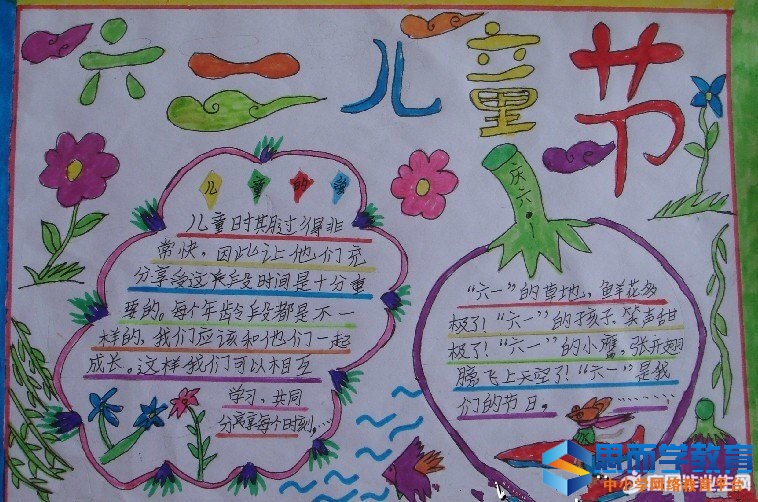 六一儿童节
儿童的梦
儿童时期过得非
常快，因此让他们充
分享受这段时间是十分重
要的。每个年龄段都是不一
样的，我们应该和他们一起
成长。这样我们可以相互
学习，共同
分享每个时刻……
庆六一
“六一”的草地，鲜花多
极了！“六一”的孩子，笑声甜
极了！“六一”的小鹰，张开翅
膀飞上天空了！“六一”是我
们的节日。…………
思而学教育
中小学网络辅导平台